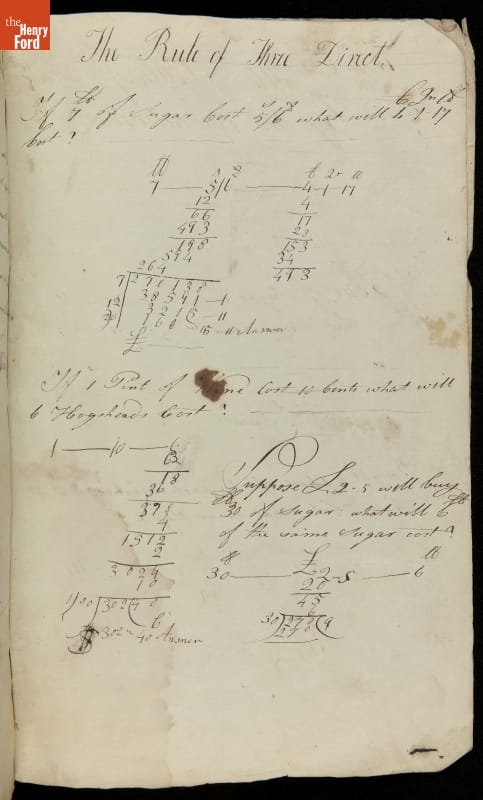 the
Henry
Ford
The Rule of Three Direct
If 7 lb of Sugar Cost 5/6 what will 4-1-17
Cost?
7 — 5/6 — 4-1-17
12 4
66 17
493
198 153
594 34
264 493
7 270138
38591 — 1
Answer
£
If 1 Pint of Wine Cost 10 Cents what will
6 Hogsheads Cost?
1 — 10 — 6
63
18
36
378
4
1512
2
3024
10
100 30240
$ 302 - 40 Answer
Suppose £ 2-5 will buy
30 lb of Sugar what will 6 lb
of the same Sugar cost?
lb £ lb
30 — 2-5 — 6
20
45
6
30)270(9
270